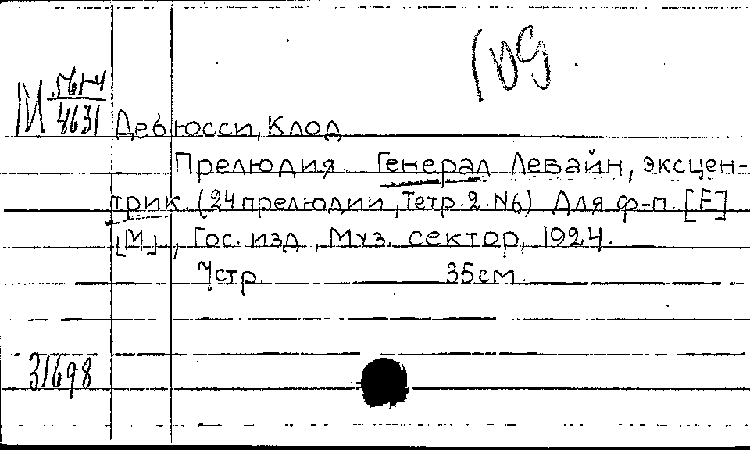 М 561-4
4631
Дебюсси, Клод
Прелюдия Генерал Левайн, эксцен-
трик. (24 прелюдии, Тетр. 2. №6) Для ф-п. [F]
[М], Гос. изд, Муз. сектор, 1924.
7 стр. 35 см.
31698